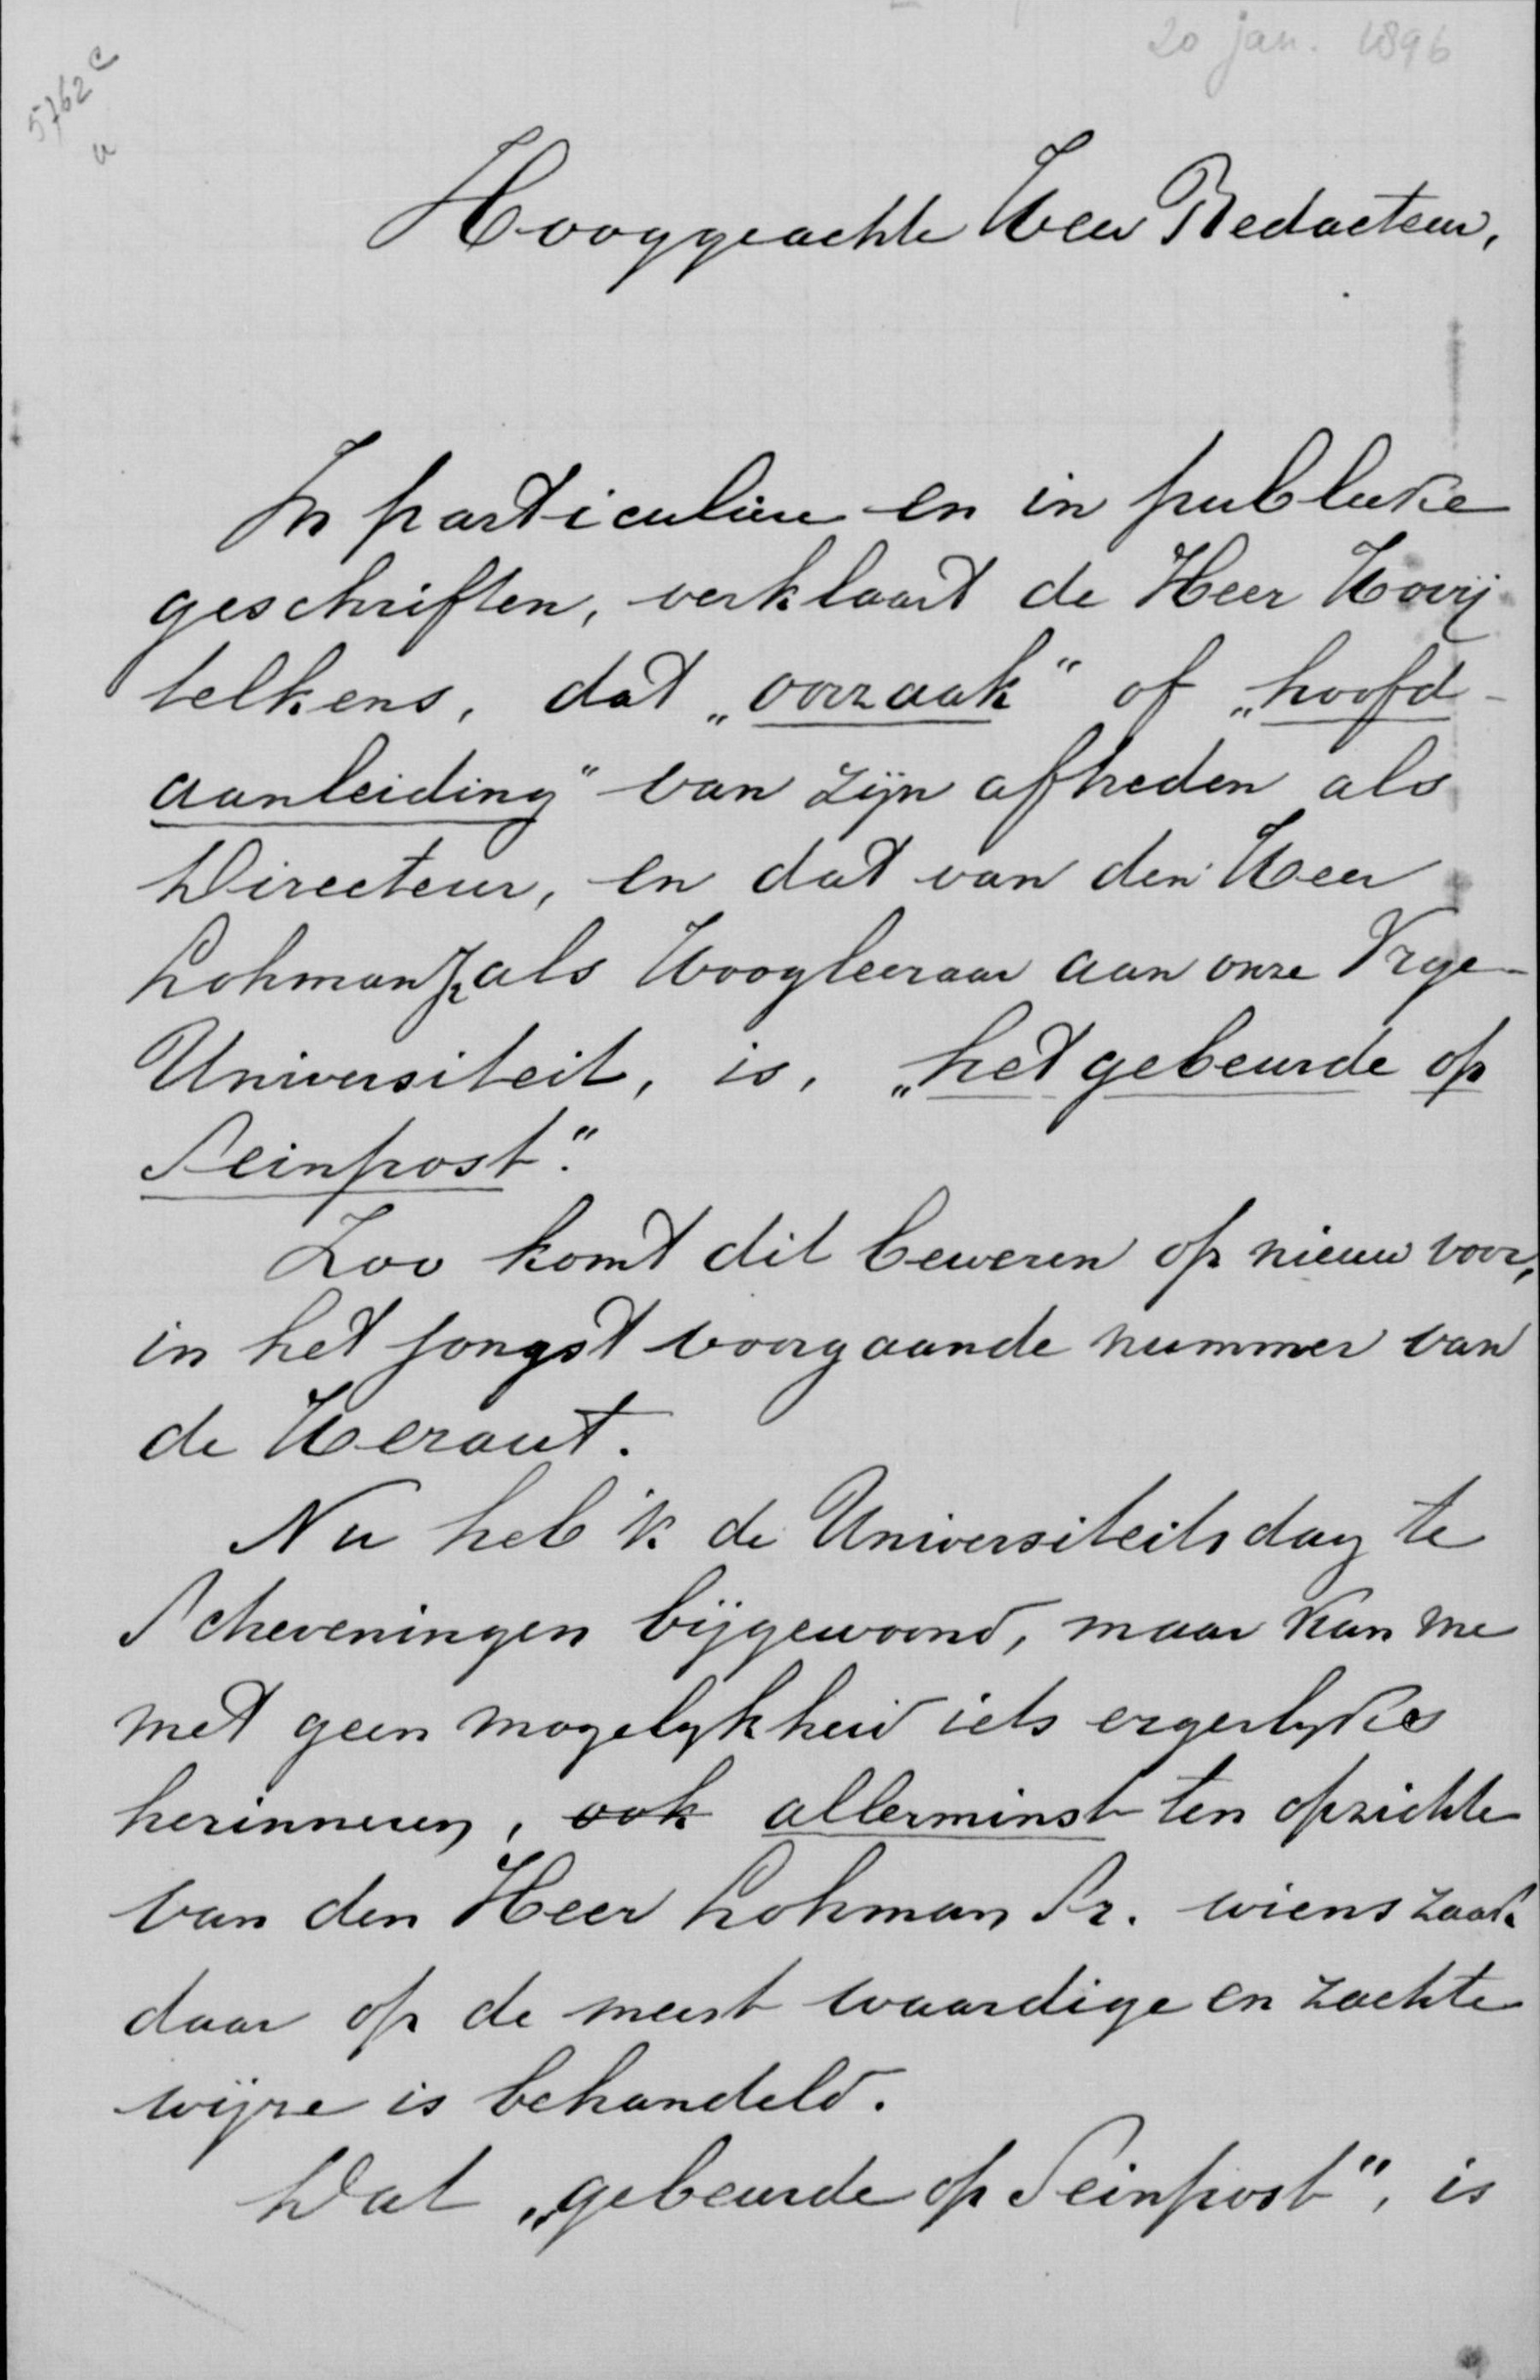 20 jan. 1896
5762 c
u
Hooggeachte Heer Redacteur,
In particuliere en in publieke
geschriften, verklaart de Heer Hovij
telkens, dat „oorzaak" of „hoofd-
aanleiding" van zijn aftreden als
Directeur, en dat van den Heer
Lohman als Hoogleeraar aan onze Vrye-
Universiteit, is, „het gebeurde op
Seinpost".
Zoo komt dit beweren op nieuw voor,
in het jongst voorgaande nummer van
de Heraut.
Nu heb 'k de Universiteitsdag te
Scheveningen bijgewoond, maar kan me
met geen mogelykheid iets ergerlykes
herinneren, ook allerminst ten opzichte
van den Heer Lohman Sr. wiens zaak
daar op de meest waardige en zachte
wijze is behandeld.
Wat „gebeurde op Seinpost", is